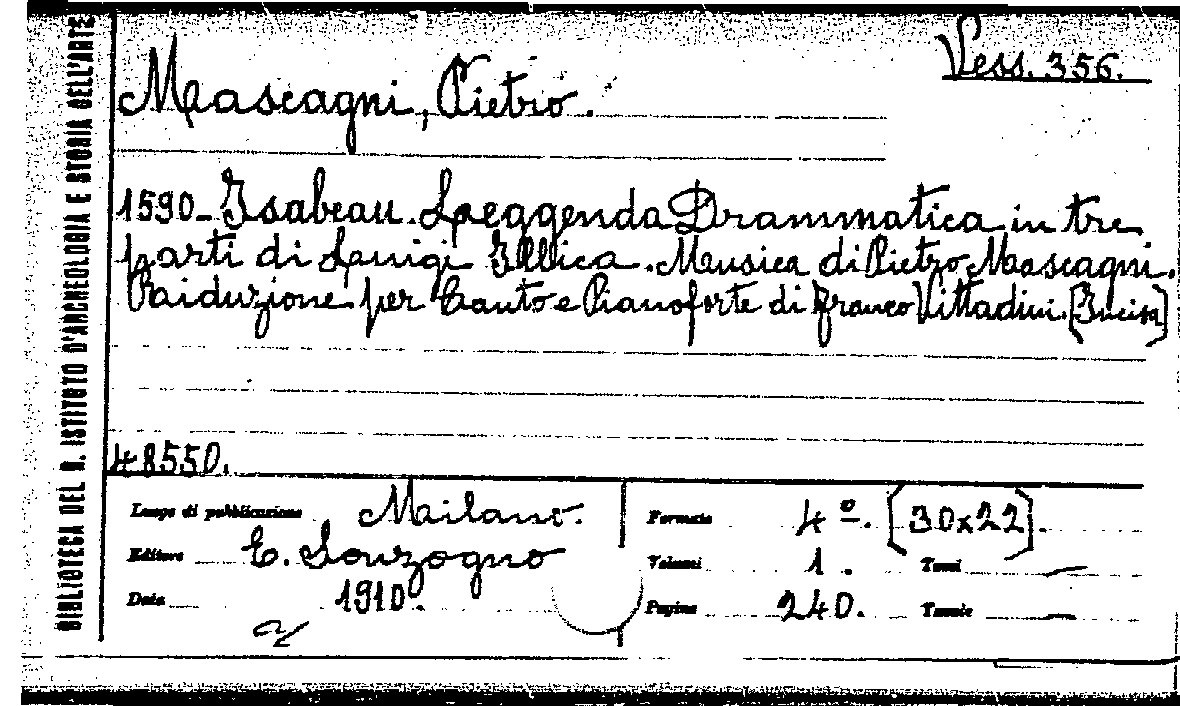 BIBLIOTECA DEL R. ISTITUTO D'ARCHEOLOGIA E STORIA DELL'ARTE
Vess. 356.
Mascagni, Pietro.
1590- Isabeau. Leggenda Drammatica in tre
parti di Luigi Illica. Musica di Pietro Mascagni.
Raiduzione per Canto e Pianoforte di Franco Vittadini. [Incisa]
48550.
Luogo di pubblicazione Milano.
Editore E. Sonzogno
Data 1910.
Formato 4º. [30x22].
Volumi 1. Tomi —
Pagine 240. Tavole —